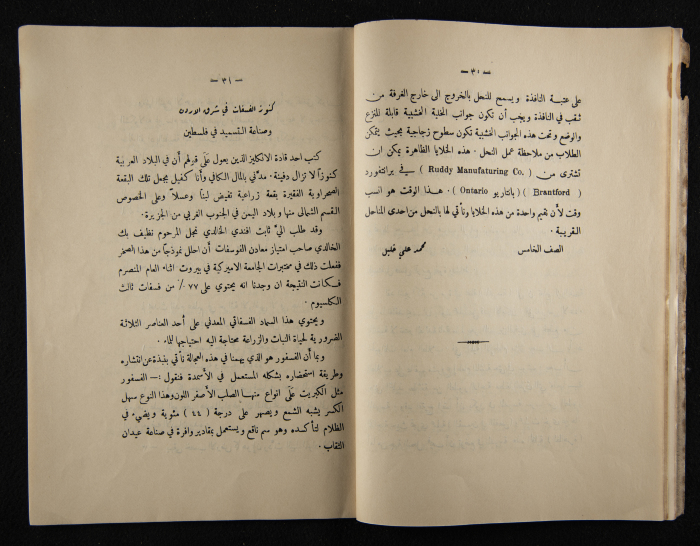 — ٣٠ —
على عتبة النافذة ويسمح للنحل بالخروج الى خارج الغرفة من
ثقب في النافذة ويجب أن تكون جوانب الخلية الخشبية قابلة للنزع
والوضع وتحت هذه الجوانب الخشبية تكون سطوح زجاجية بحيث يتمكن
الطلاب من ملاحظة عمل النحل. هذه الخلايا الظاهرة يمكن ان
تشترى من ( Ruddy Manufaturing Co. ) في برانتفورد
( Brantford ) (بانتاريو Ontario). هذا الوقت هو انسب
وقت لأن نقيم واحدة من هذه الخلايا ونأتي لها بالنحل من احدى المناحل
القريبة.
الصف الخامس محمد علي قليل
— ٣١ —
كنوز الفسفات في شرق الاردن
وصناعة التسميد في فلسطين
كتب احد قادة الانكليز الذين يعول على قولهم أن في البلاد العربية
كنوزاً لا تزال دفينة. مدّني بالمال الكافي وأنا كفيل بجعل تلك البقعة
الصحراوية الفقيرة بقعة زراعية تفيض لبناً وعسلاً وعلى الخصوص
القسم الشمالي منها وبلاد اليمن في الجنوب الغربي من الجزيرة.
وقد طلب اليّ ثابت افندي الخالدي نجل المرحوم نظيف بك
الخالدي صاحب امتياز معادن الفوسفات أن احلل نموذجاً من هذا الصخر
ففعلت ذلك في مختبرات الجامعة الاميركية في بيروت اثناء العام المنصرم
فكانت النتيجة ان وجدنا انه يحتوي على ٧٧ ٪ من فسفات ثالث
الكلسيوم.
ويحتوي هذا السماد الفسفاتي المعدني على أحد العناصر الثلاثة
الضرورية لحياة النبات والزراعة محتاجة اليه احتياجها للماء.
وبما أن الفسفور هو الذي يهمنا في هذه العجالة نأتي بنبذة عن انتشاره
وطريقة استحضاره بشكله المستعمل في الأسمدة فنقول :— الفسفور
مثل الكبريت على انواع منها الصلب الأصفر اللون وهذا النوع سهل
الكسر يشبه الشمع ويصهر على درجة (٤٤) مئوية ويضيء في
الظلام لتأكسده وهو سم ناقع ويستعمل بمقادير وافرة في صناعة عيدان
الثقاب.